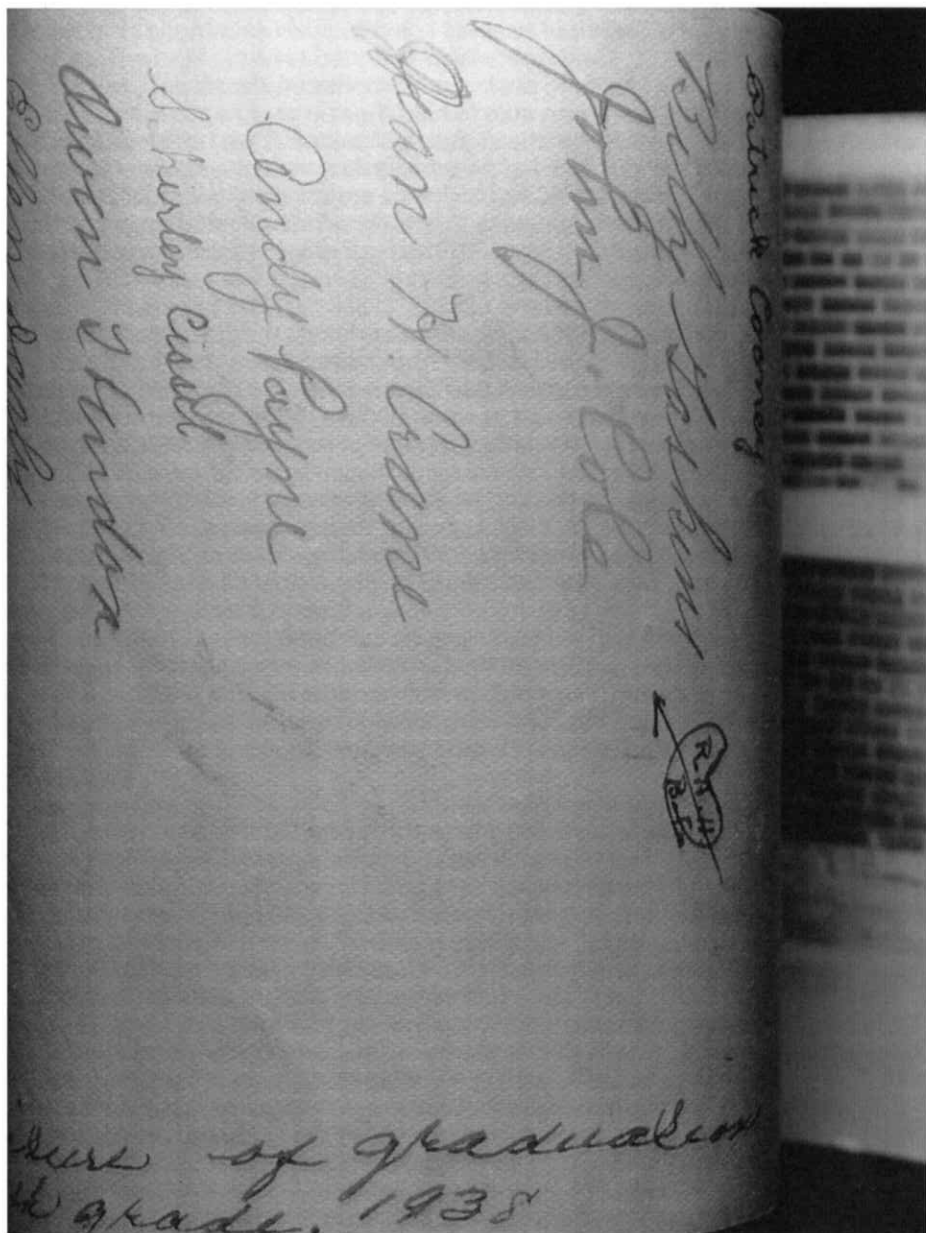 Patrick Cooney
Billy
John J. Cole
Jean H. Crane
Andy Payne
Shirley Cissel
Owen
Ellen
R.A.H
of graduation
grade, 1938